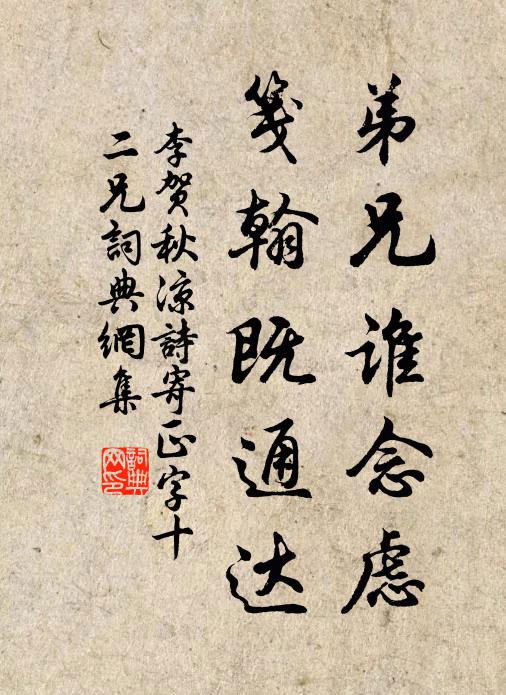 弟兄谁念虑
笺翰既通达
李贺秋凉詩寄正字十
二兄詞典網集
詞典
网印